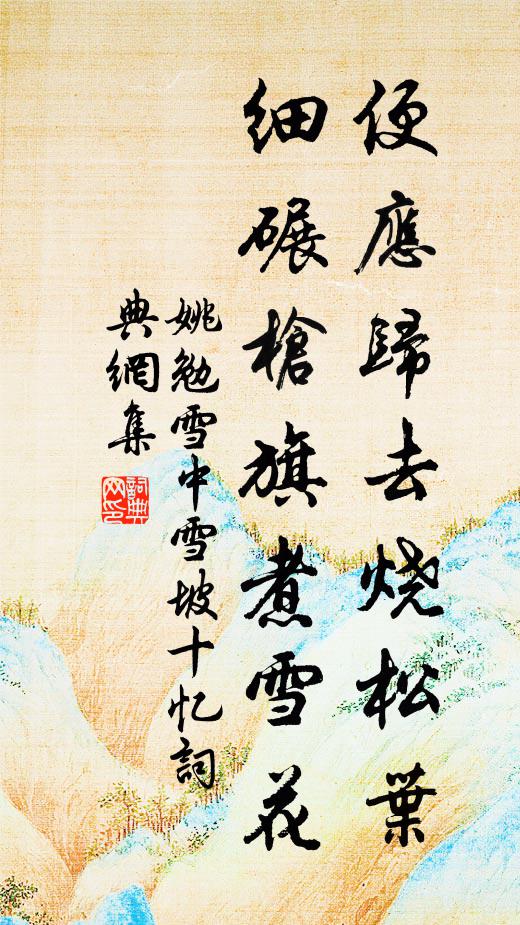 便應歸去烧松葉
細碾槍旗煮雪花
姚勉雪中雪坡十忆詞
典網集
詞典
网印